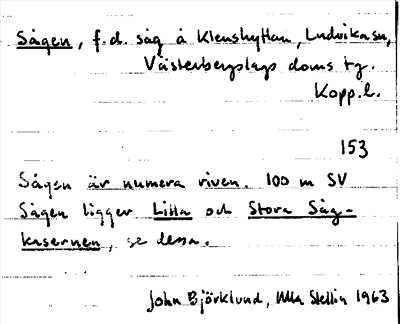 Sågen, f.d. såg å Klenshyttan, Ludvika sn,
Västerbergslags doms tg.
Kopp. l.
153
Sågen är numera riven. 100 m SV
Sågen ligger Lilla och Stora Såg-
kasernen, se dessa.
John Björklund, Ulla Stellin 1963